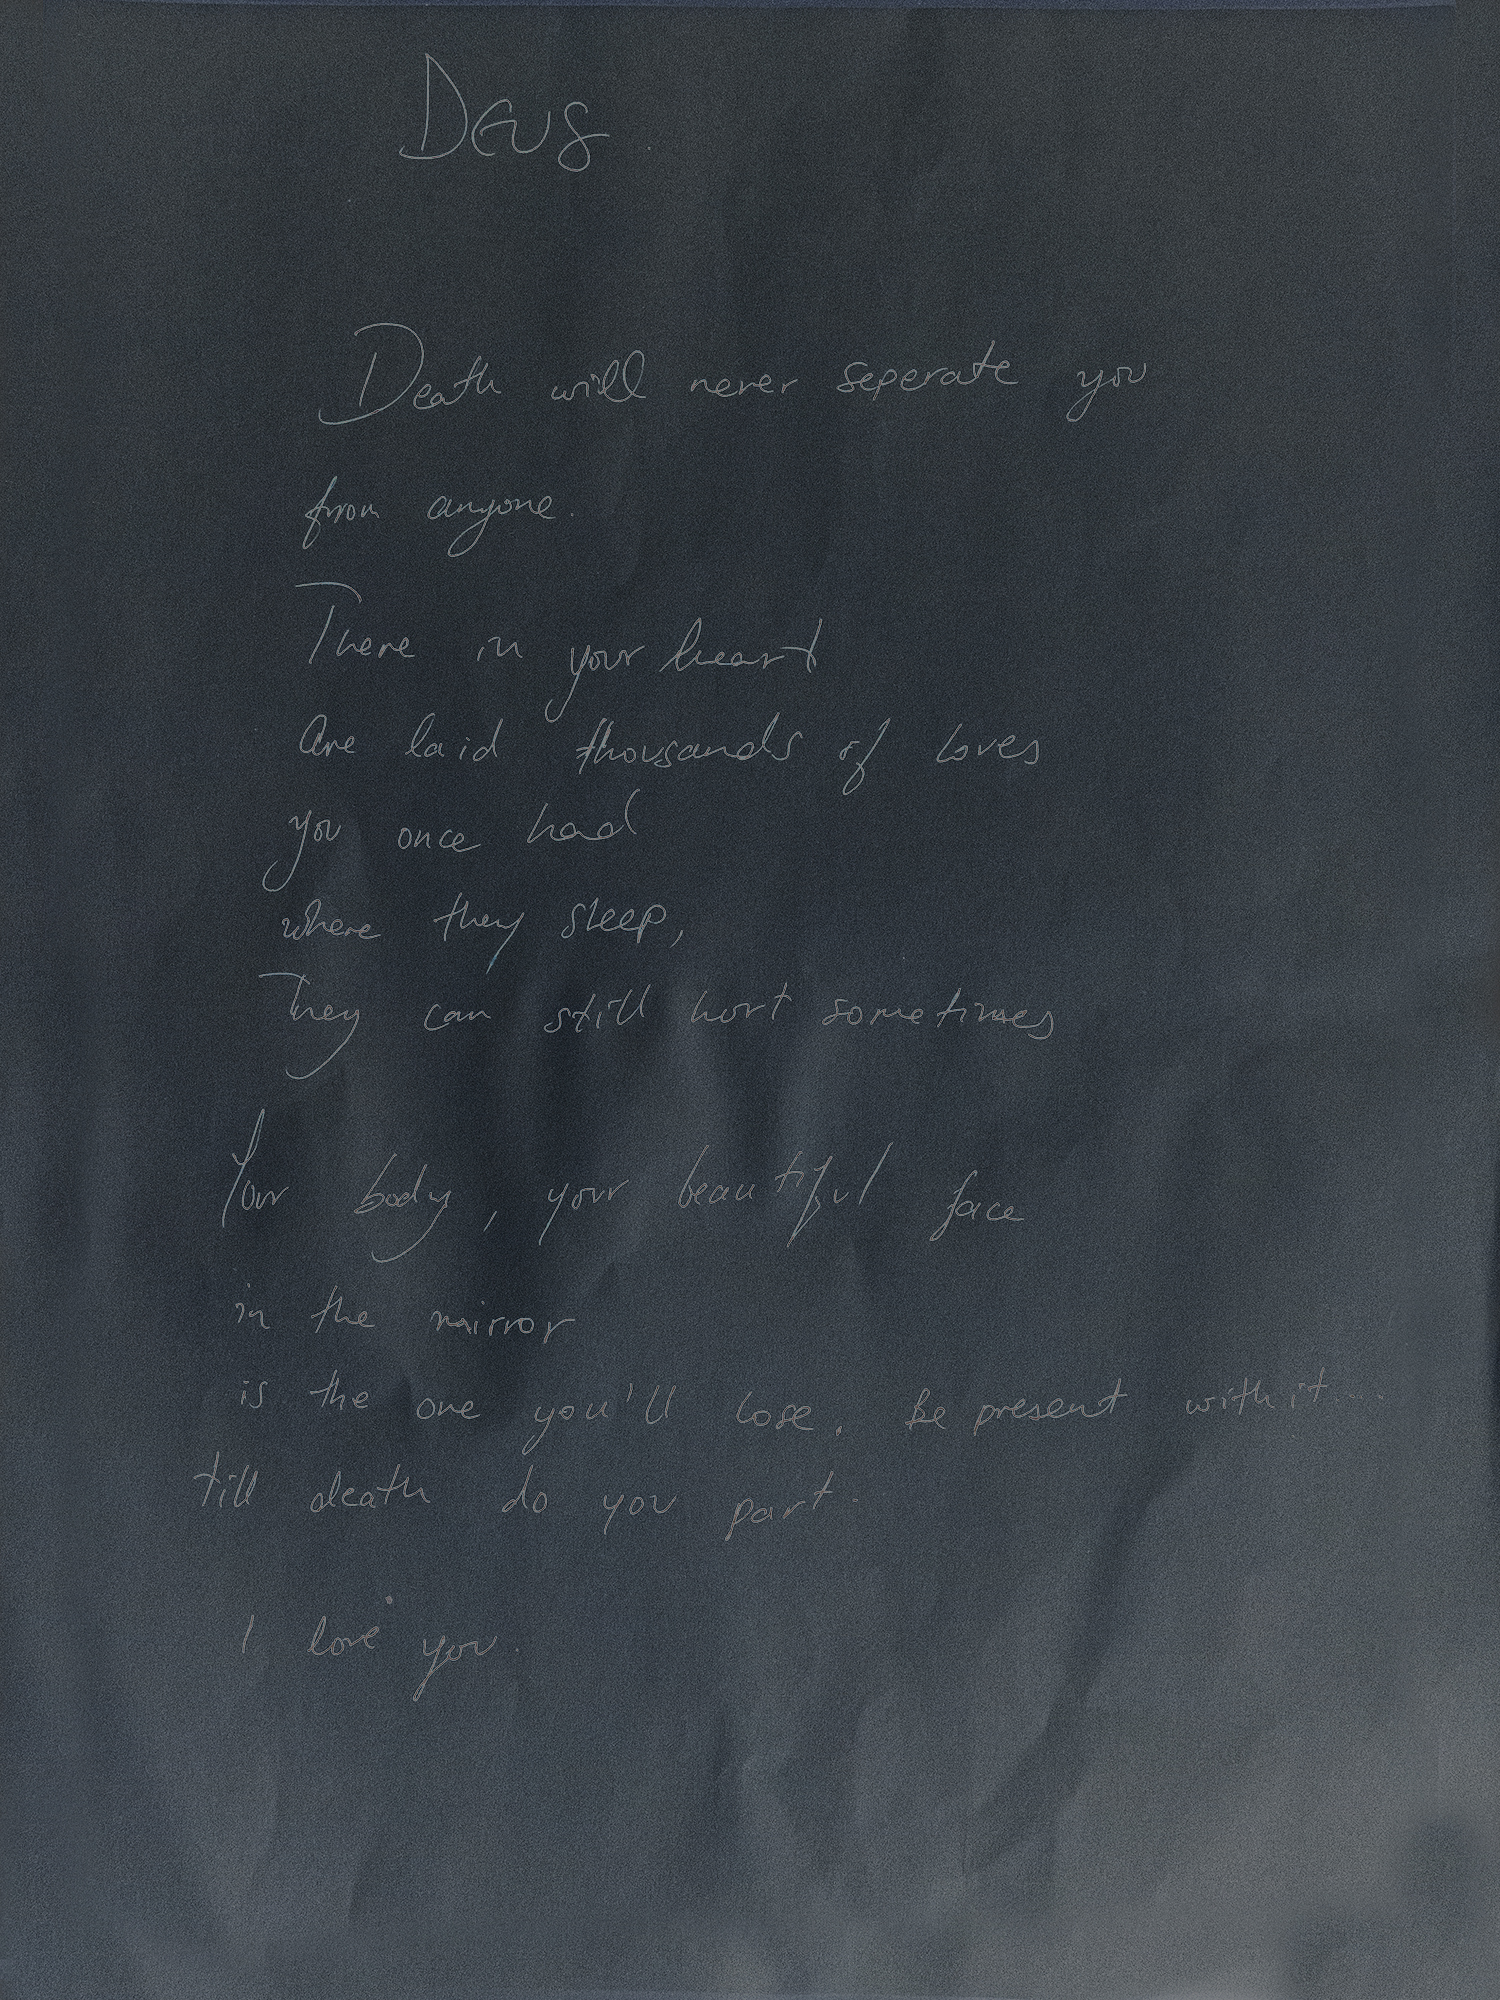 Deus
Death will never seperate you
from anyone.
There in your heart
Are laid thousands of loves
you once had
where they sleep,
They can still hurt sometimes
Your body, your beautiful face
in the mirror
is the one you'll lose. Be present with it...
till death do you part.
I love you.